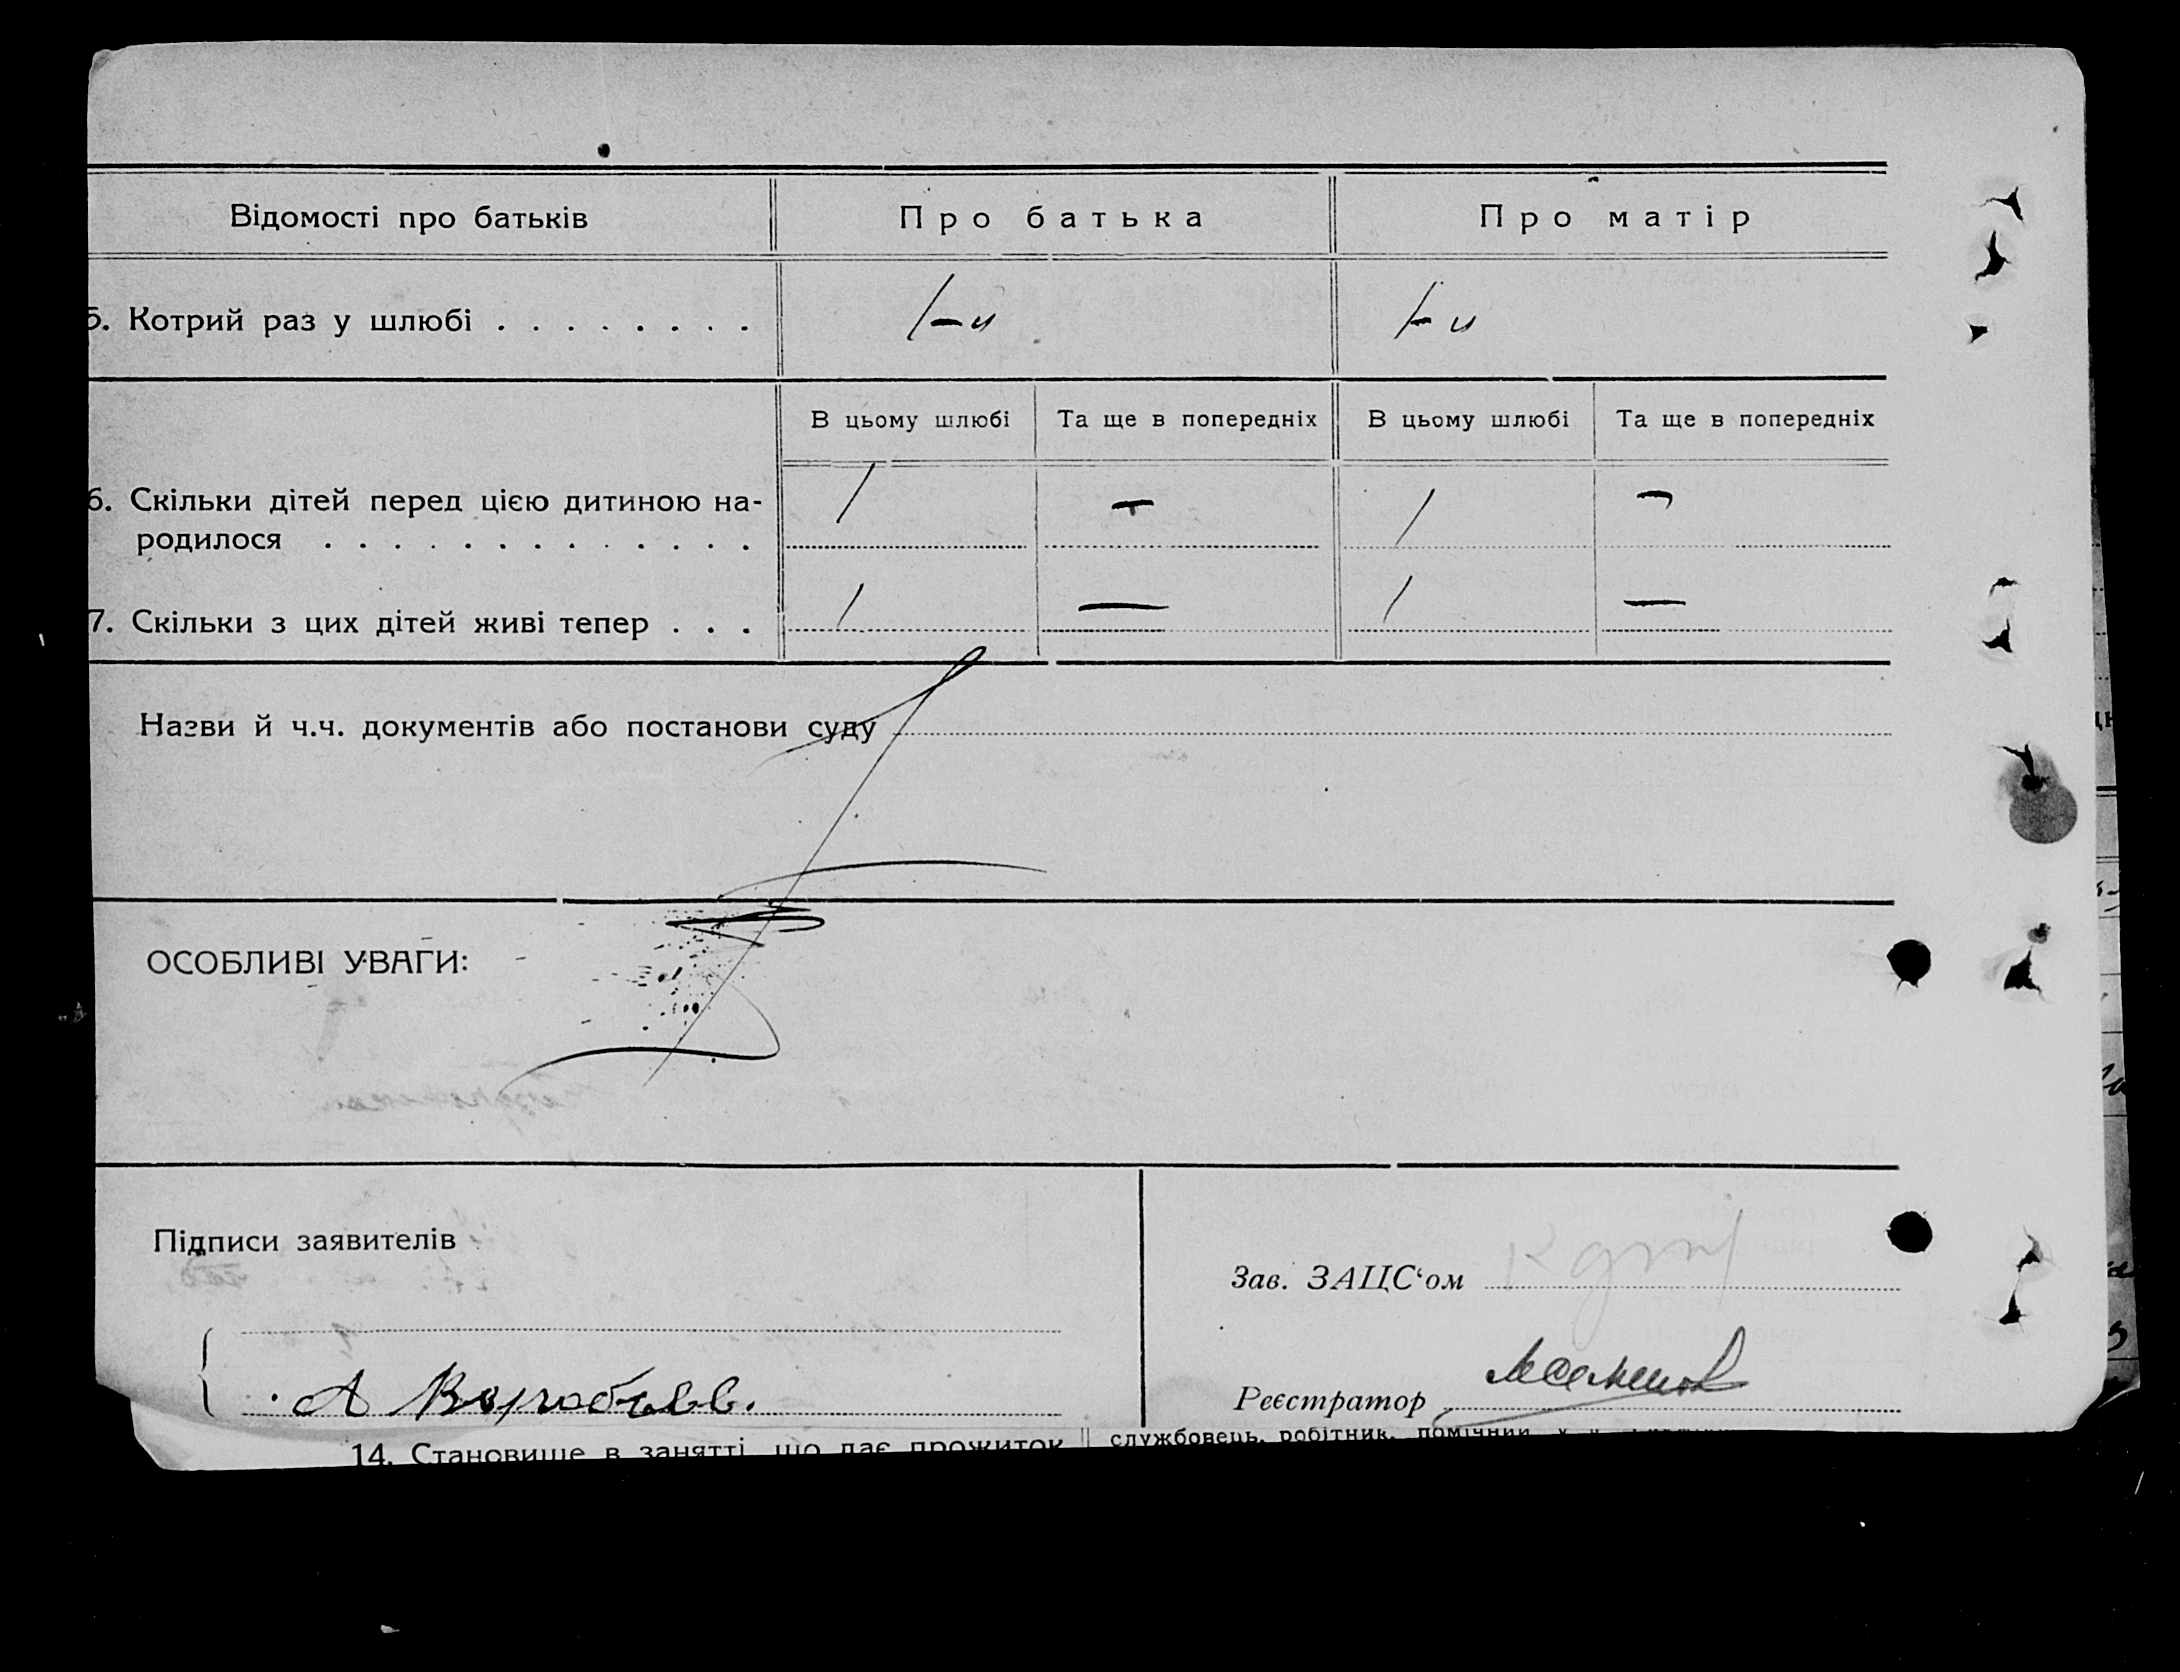 Відомості про батьків Про батька Про матір
5. Котрий раз у шлюбі . . . . . . . . 1-й 1-й
В цьому шлюбі Та ще в попередніх В цьому шлюбі Та ще в попередніх
6. Скільки дітей перед цією дитиною на-
родилося . . . . . . . . . . . . . 1 — 1 —
7. Скільки з цих дітей живі тепер . . . 1 — 1 —
Назви й ч.ч. документів або постанови суду
ОСОБЛИВІ УВАГИ:
Підписи заявителів
Зав. ЗАЦС‘ом
А Воробьев.
Реєстратор
14. Становище в занятті, що дає прожиток
службовець, робітник,